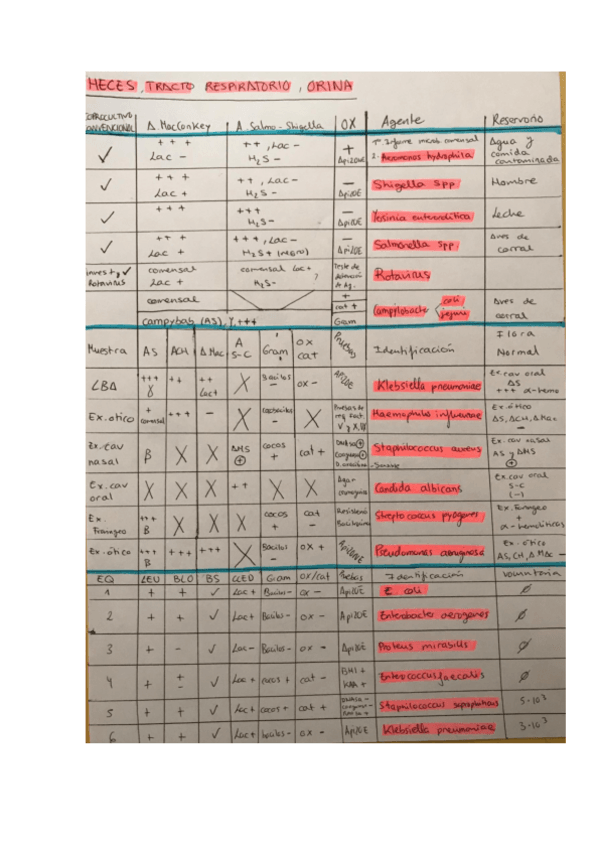 HECES, TRACTO RESPIRATORIO, ORINA
COPROCULTIVO CONVENCIONAL | Δ MacConkey | A. Salmo-Shigella | OX | Agente | Reservorio
✓ | +++ Lac - | ++, Lac - H₂S - | + Api20NE | 2. Aeromonas hydrophila | Agua y comida contaminada
✓ | +++ Lac + | ++, Lac - H₂S - | - Api20E | Shigella spp | Hombre
✓ | +++ | +++ H₂S - | - Api20E | Yersinia enterolitica | Leche
✓ | +++ Lac + | +++, Lac - H₂S + (negro) | - Api20E | Salmonella spp | Aves de corral
Rotavirus | comensal Lac + | comensal Lac +, H₂S - | Teste de Ag. | Rotavirus
comensal | + cat + | Campylobacter coli jejuni | Aves de corral
campybab (AS), γ, +++ | Gram
Muestra | AS | ACH | Δ Mac | A S-C | Gram | OX cat | Pruebas | Identificación | Flora Normal
LBA | +++ γ | ++ | ++ Lac+ | X | Bacilos - | ox - | Api20E | Klebsiella pneumoniae | Ex. cav oral ΔS +++ α-hemo
Ex. otico | + comensal | +++ | - | X | X | V y X | Haemophilus influenzae | Ex. otico ΔS, ΔCH, ΔMac -
Ex. cav nasal | β | X | X | ΔMS ⊕ | cocos + | cat + | Staphilococcus aureus | Ex. cav nasal AS y ΔMS ⊕
Ex. cav oral | X | X | X | ++ | X | X | Agar | Candida albicans | Ex. cav oral S-C (-)
Ex. Faringeo | +++ β | X | X | X | cocos + | cat - | Bacitracina | Streptococcus pyogenes | Ex. Faringeo + α-hemolíticos
Ex. ótico | +++ β | +++ | +++ | X | Bacilos - | OX + | Api20NE | Pseudomonas aeruginosa | Ex. ótico AS, CH, Δ Mac -
EQ | LEU | BLO | BS | CLED | Gram | ox/cat | Pruebas | Identificación | voluntaria
1 | + | + | ✓ | Lac + | Bacilos - | ox - | Api20E | E. coli | Ø
2 | + | + | ✓ | Lac + | Bacilos - | ox - | Api20E | Enterobacter aerogenes | Ø
3 | + | - | ✓ | Lac - | Bacilos - | ox - | Api20E | Proteus mirabilis | Ø
4 | + | + - | ✓ | Lac + | cocos + | cat - | BHI + | Enterococcus faecalis | Ø
5 | + | + | ✓ | Lac + | cocos + | cat + | Staphilococcus saprophiticus | 5·10³
6 | + | + | ✓ | Lac + | bacilos - | ox - | Api20E | Klebsiella pneumoniae | 3·10³